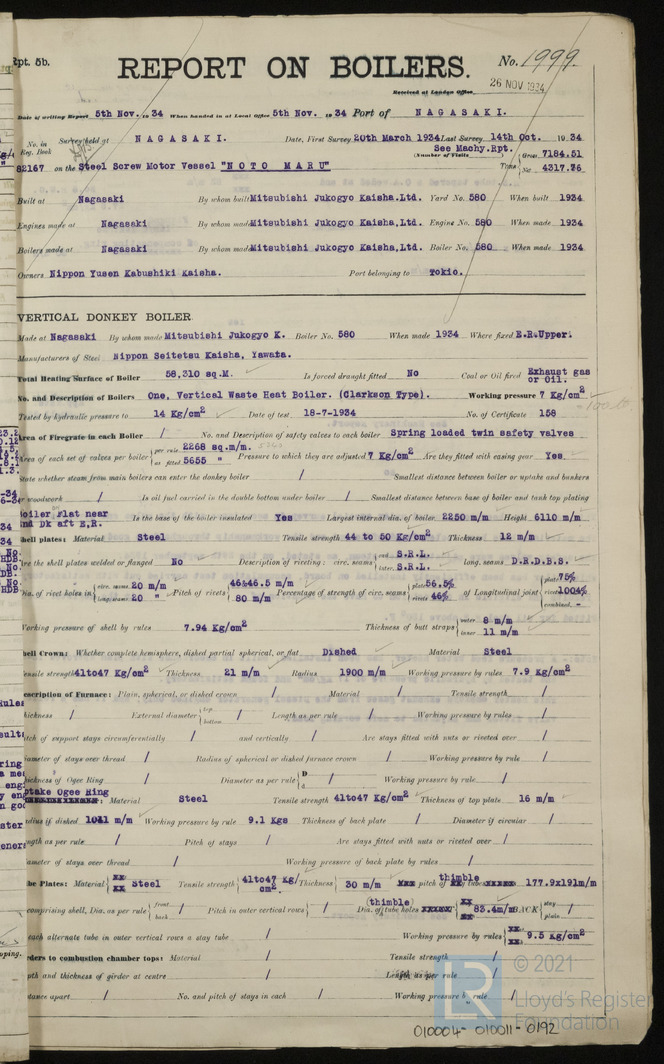 Rpt. 5b.
REPORT ON BOILERS.
No. 1999.
Received at London Office
26 NOV 1934
Date of writing Report 5th Nov. 1934 When handed in at Local Office 5th Nov. 1934 Port of NAGASAKI.
No. in Reg. Book Survey held at NAGASAKI. Date, First Survey 20th March 1934 Last Survey 14th Oct. 1934
See Machy.Rpt.
(Number of Visits
82167 on the Steel Screw Motor Vessel "NOTO MARU" Tons Gross 7184.51 Net 4317.76
Built at Nagasaki By whom built Mitsubishi Jukogyo Kaisha.Ltd. Yard No. 580 When built 1934
Engines made at Nagasaki By whom made Mitsubishi Jukogyo Kaisha,Ltd. Engine No. 580 When made 1934
Boilers made at Nagasaki By whom made Mitsubishi Jukogyo Kaisha,Ltd. Boiler No. 580 When made 1934
Owners Nippon Yusen Kabushiki Kaisha. Port belonging to Tokio.
VERTICAL DONKEY BOILER.
Made at Nagasaki By whom made Mitsubishi Jukogyo K. Boiler No. 580 When made 1934 Where fixed E.R.Upper.
Manufacturers of Steel Nippon Seitetsu Kaisha, Yawata.
Total Heating Surface of Boiler 58,310 sq.M. Is forced draught fitted No Coal or Oil fired Exhaust gas or Oil.
No. and Description of Boilers One, Vertical Waste Heat Boiler. (Clarkson Type). Working pressure 7 Kg/cm2
Tested by hydraulic pressure to 14 Kg/cm2 Date of test 18-7-1934 No. of Certificate 158
Area of Firegrate in each Boiler / No. and Description of safety valves to each boiler Spring loaded twin safety valves
Area of each set of valves per boiler per rule 2268 sq.m/m. as fitted 5655 " Pressure to which they are adjusted 7 Kg/cm2 Are they fitted with easing gear Yes
State whether steam from main boilers can enter the donkey boiler / Smallest distance between boiler or uptake and bunkers
or woodwork / Is oil fuel carried in the double bottom under boiler / Smallest distance between base of boiler and tank top plating
Boiler Flat near 2nd Dk aft E.R. Is the base of the boiler insulated Yes Largest internal dia. of boiler 2250 m/m Height 6110 m/m
Shell plates: Material Steel Tensile strength 44 to 50 Kg/cm2 Thickness 12 m/m
Are the shell plates welded or flanged No Description of riveting: circ. seams end S.R.L. inter. S.R.L. long. seams D.R.D.B.S.
Dia. of rivet holes in circ. seams 20 m/m long. seams 20 " Pitch of rivets 46&46.5 m/m 80 m/m Percentage of strength of circ. seams plate 56.5% rivets 46% of Longitudinal joint plate 75% rivets 100.4% combined. -
Working pressure of shell by rules 7.94 Kg/cm2 Thickness of butt straps outer 8 m/m inner 11 m/m
Shell Crown: Whether complete hemisphere, dished partial spherical, or flat Dished Material Steel
Tensile strength 41to47 Kg/cm2 Thickness 21 m/m Radius 1900 m/m Working pressure by rules 7.9 Kg/cm2
Description of Furnace: Plain, spherical, or dished crown / Material / Tensile strength /
Thickness / External diameter top. bottom. / Length as per rule / Working pressure by rules /
Pitch of support stays circumferentially / and vertically / Are stays fitted with nuts or riveted over /
Diameter of stays over thread / Radius of spherical or dished furnace crown / Working pressure by rule /
Thickness of Ogee Ring / Diameter as per rule D d / Working pressure by rule /
Uptake Ogee Ring
Material Steel Tensile strength 41to47 Kg/cm2 Thickness of top plate 16 m/m
Radius if dished 1041 m/m Working pressure by rule 9.1 Kgs Thickness of back plate / Diameter if circular /
Length as per rule / Pitch of stays / Are stays fitted with nuts or riveted over /
Diameter of stays over thread / Working pressure of back plate by rules /
Tube Plates: Material Steel Tensile strength 41to47 Kg/cm2. Thickness 30 m/m pitch of thimble tubes 177.9x191m/m
If comprising shell, Dia. as per rule front back / Pitch in outer vertical rows / Dia. of tube holes (thimble) 83.4m/m BACK stay plain /
Is each alternate tube in outer vertical rows a stay tube / Working pressure by rules 9.5 Kg/cm2
Girders to combustion chamber tops: Material / Tensile strength /
Depth and thickness of girder at centre / Length as per rule /
Distance apart / No. and pitch of stays in each / Working pressure by rule /
© 2021
Lloyd's Register
Foundation
010004-010011-0192